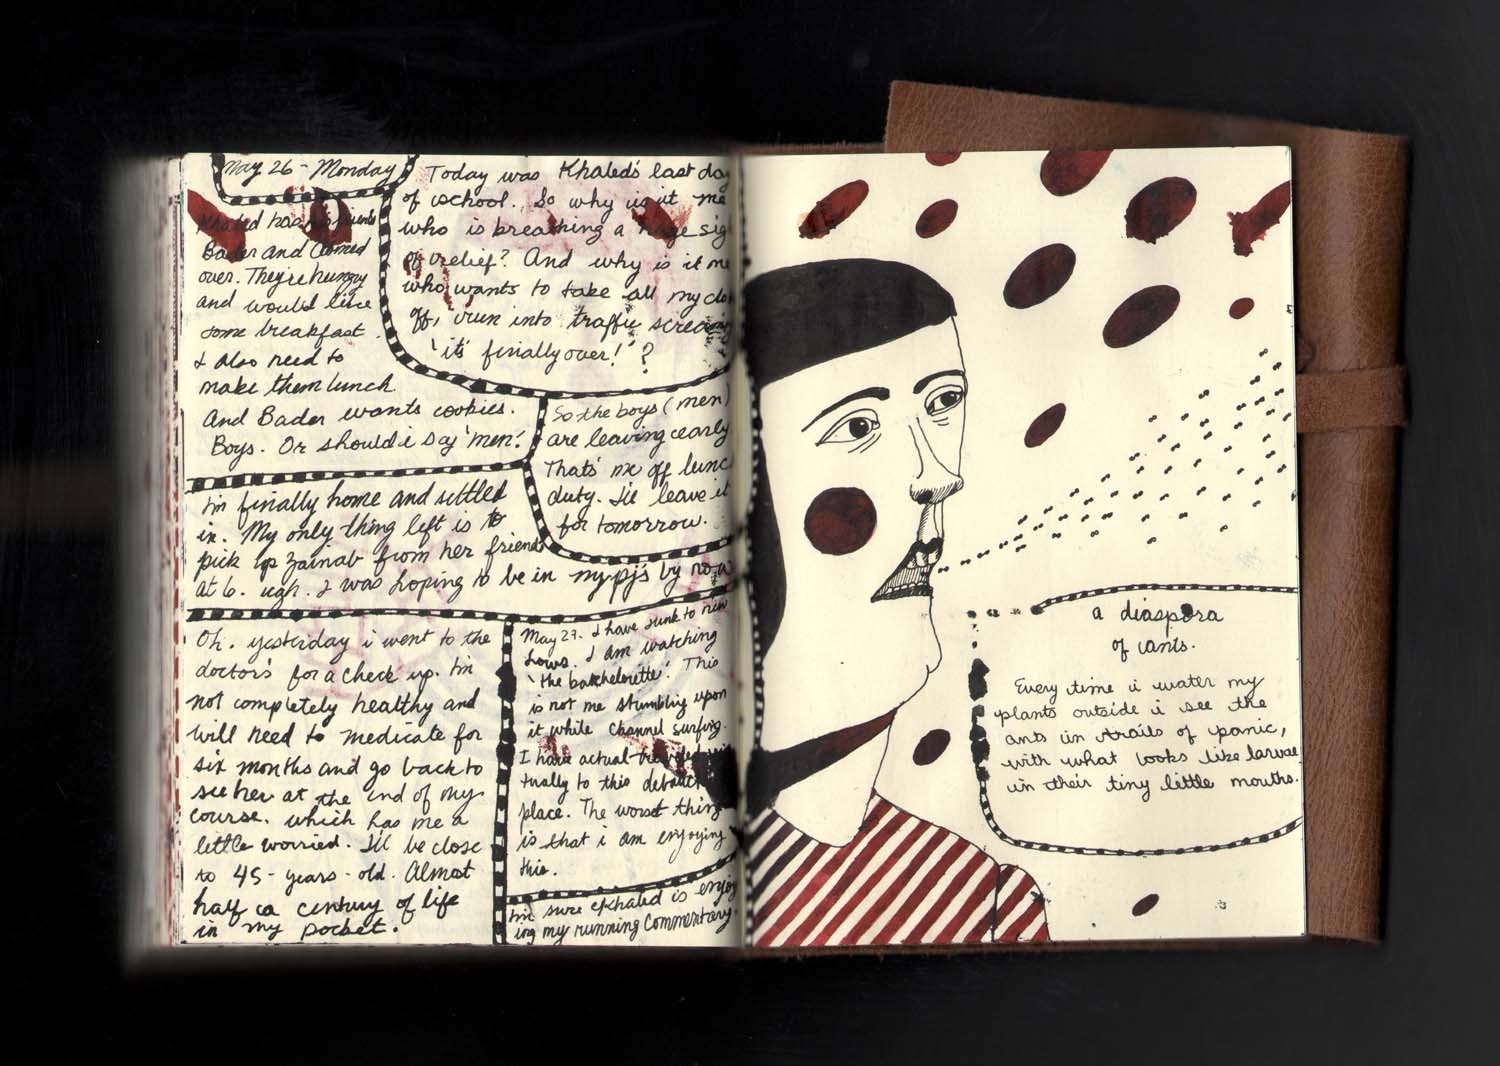 May 26 - Monday
Today was Khaled's last day
of school. So why is it me
who is breathing a huge sigh
of relief? And why is it me
who wants to take all my clo
off, run into traffic screaming
'it's finally over!'?
Khaled has his friends
Bader and Ahmed
over. They're hungry
and would like
some breakfast.
I also need to
make them lunch
And Bader wants cookies.
Boys. Or should i say 'men'.
So the boys (men)
are leaving early
That's me off lunch
duty. I'll leave it
for tomorrow.
I'm finally home and settled
in. My only thing left is to
pick up Zainab from her friend
at 6. ugh. I was hoping to be in my pj's by now
Oh. yesterday i went to the
doctor's for a check up. I'm
not completely healthy and
will need to medicate for
six months and go back to
see her at the end of my
course. which has me a
little worried. I'll be close
to 45-years-old. Almost
half a century of life
in my pocket.
May 27. I have sunk to new
lows. I am watching
'the bachelorette'. This
is not me stumbling upon
it while channel surfing.
I have actual-
tually to this
place. The worst thing
is that i am enjoying
this.
I'm sure Khaled is enjoy
ing my running commentary.
a diaspora
of ants.
Every time i water my
plants outside i see the
ants in trails of panic,
with what looks like larvae
in their tiny little mouths.